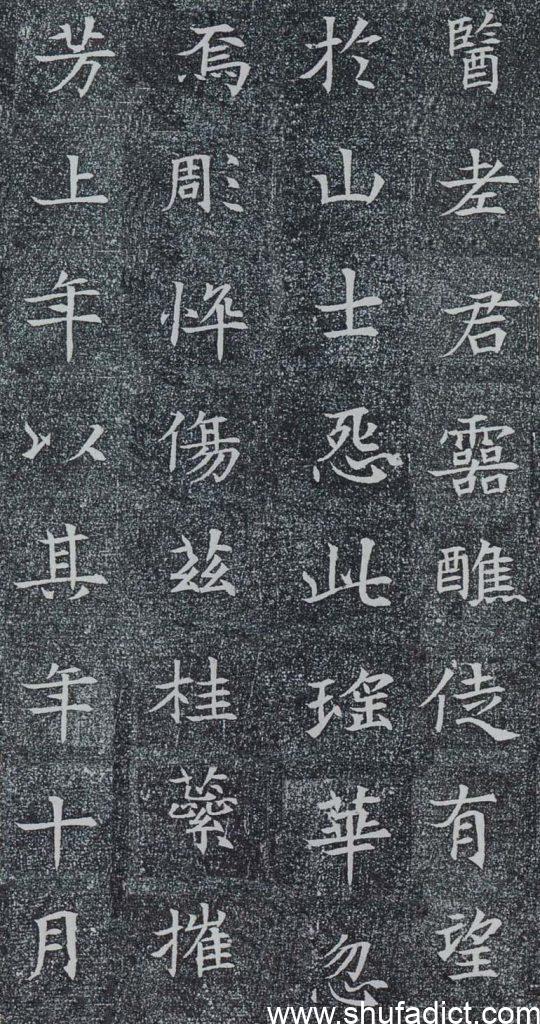 醫老君靈醮徒有望
於山士怨此瑤華忽
焉彫悴傷茲桂蘂摧
芳上年以其年十月
www.shufadict.com